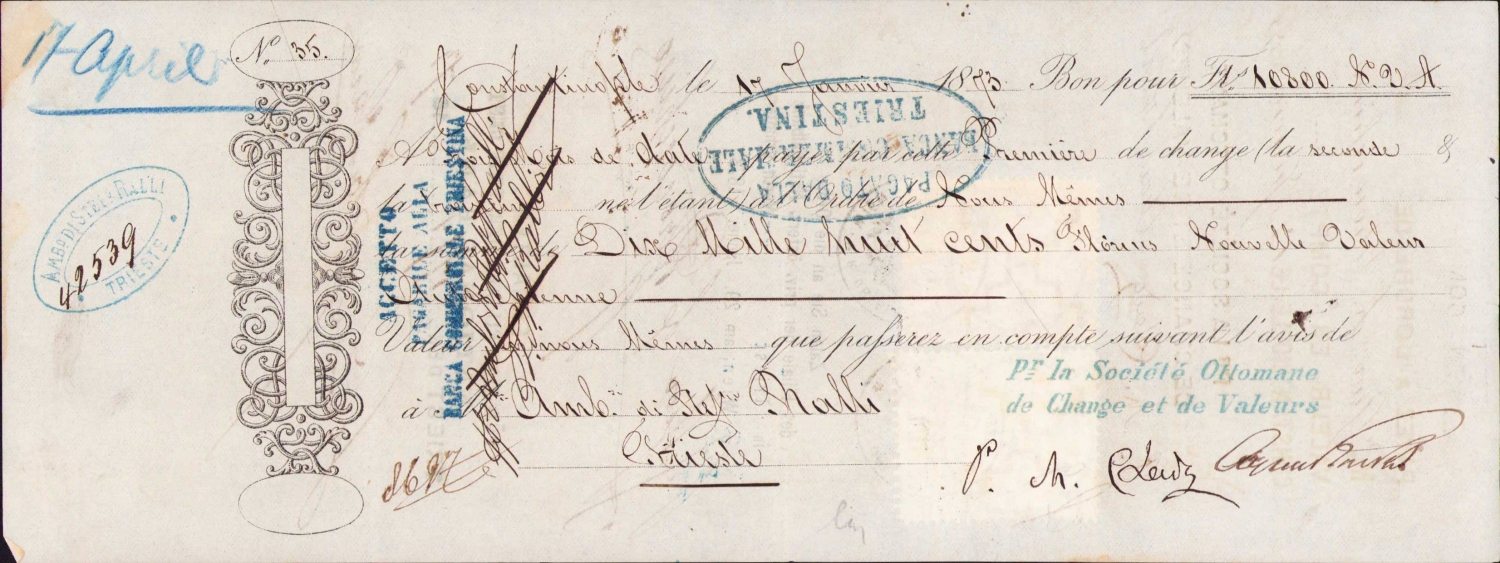 17 April
N. 35.
Constantinople le 17 Janvier 1873. Bon pour Fl.s 10800. N.e V. A.
A Trois Mois de date payez par cette Première de change (la seconde &
la troisième ne l'étant) à l'Ordre de Nous Mêmes
la somme de Dix Mille huit cents Florins Nouvelle Valeur
Autrichienne
Valeur en nous Mêmes que passerez en compte suivant l'avis de
à Amb.o di Stef.o Ralli
Trieste
Pr. la Société Ottomane
de Change et de Valeurs
P. M.
8697
AMBo DI STEFo RALLI
42539
TRIESTE
ACCETTO
PAGABILE ALLA
BANCA COMMERCIALE TRIESTINA
PAGATO DALLA
BANCA COMMERCIALE
TRIESTINA.